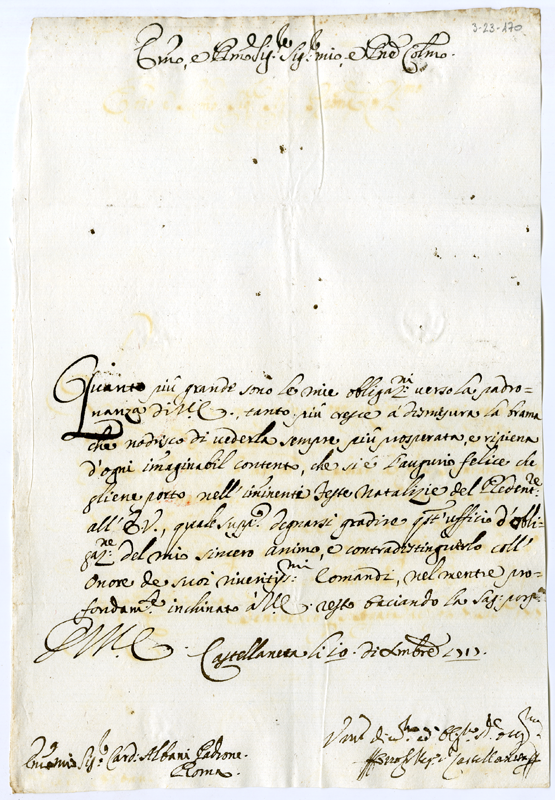 3-23-170
Emo, e Rmo Sig.re Sig.re mio, e Pne Colmo.
Quanto più grande sono le mie obligaz.ni verso la padro=
nanza di V.E., tanto più cresce a dismisura la brama
che nodrisco di vederla sempre più prosperata, e ripiena
d'ogni imaginabil contento, che si è l'augurio felice che
gliene porto nell'iminenti feste Natalizie del Redent.re
all'E.V., quale supp.o degnarsi gradire quest'ufficio d'obli=
gaz.ne del mio sincero animo, e contradistinguerlo coll'
Onore de suoi riveritiss.mi Comandi, nel mentre pro=
fondam.te inchinato à V.E. resto baciando la Sag. porp.ra
D.V.E.
Castellaneta li 10. dicembre 1717.
Emo mio Sig.re Card. Albani Padrone.
Roma.